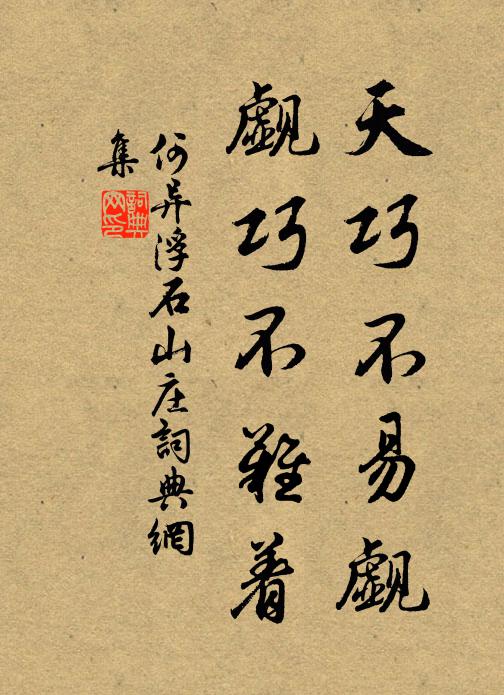 天巧不易覷
覷巧不難着
何异浮石山庄詞典網
集
詞典
网印